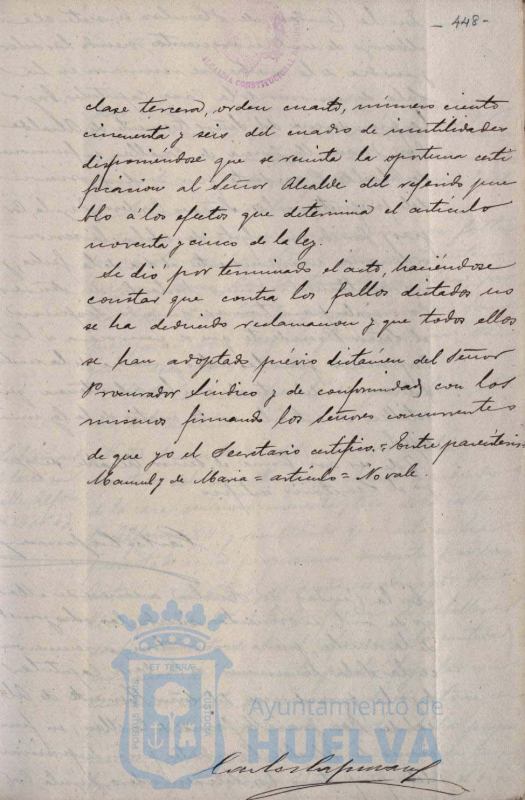 - 448 -
ALCALDIA CONSTITUCIONAL
clase tercera, orden cuarto, número ciento
cincuenta y seis del cuadro de inutilidades
disponiéndose que se remita la oportuna certi
ficacion al Señor Alcalde del referido pue
blo á los efectos que determina el artículo
noventa y cinco de la ley.
Se dió por terminado el acto, haciéndose
constar que contra los fallos dictados no
se ha deducido reclamacion y que todos ellos
se han adoptado prévio dictámen del Señor
Procurador Síndico y de conformidad con los
mismos firmando los Señores concurrentes
de que yo el Secretario certifico. = Entre paréntesis =
Manuel y de Maria = artículo = No vale.
ET TERRAE
PORTUS MARIS
CUSTODIA
Ayuntamiento de
HUELVA
Carlos